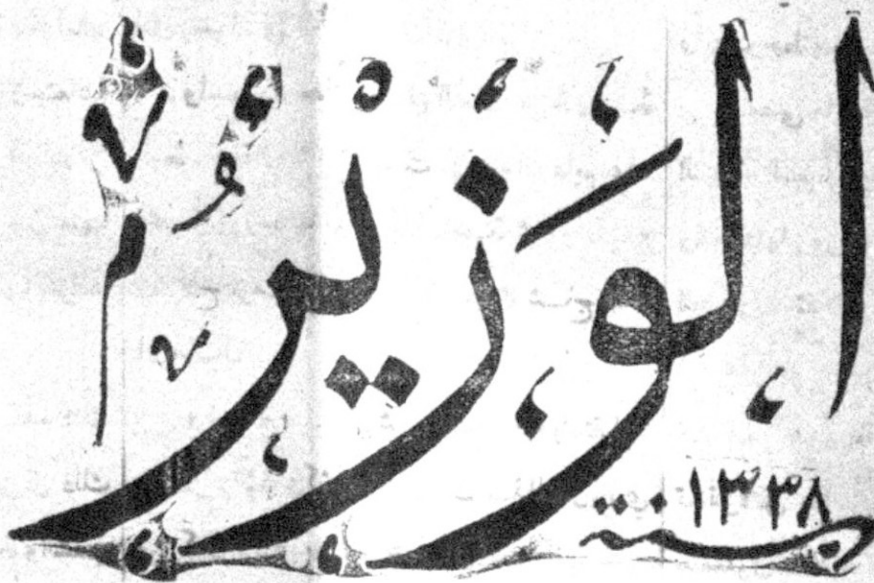 الوَزِيرُ
سنة ١٣٣٨